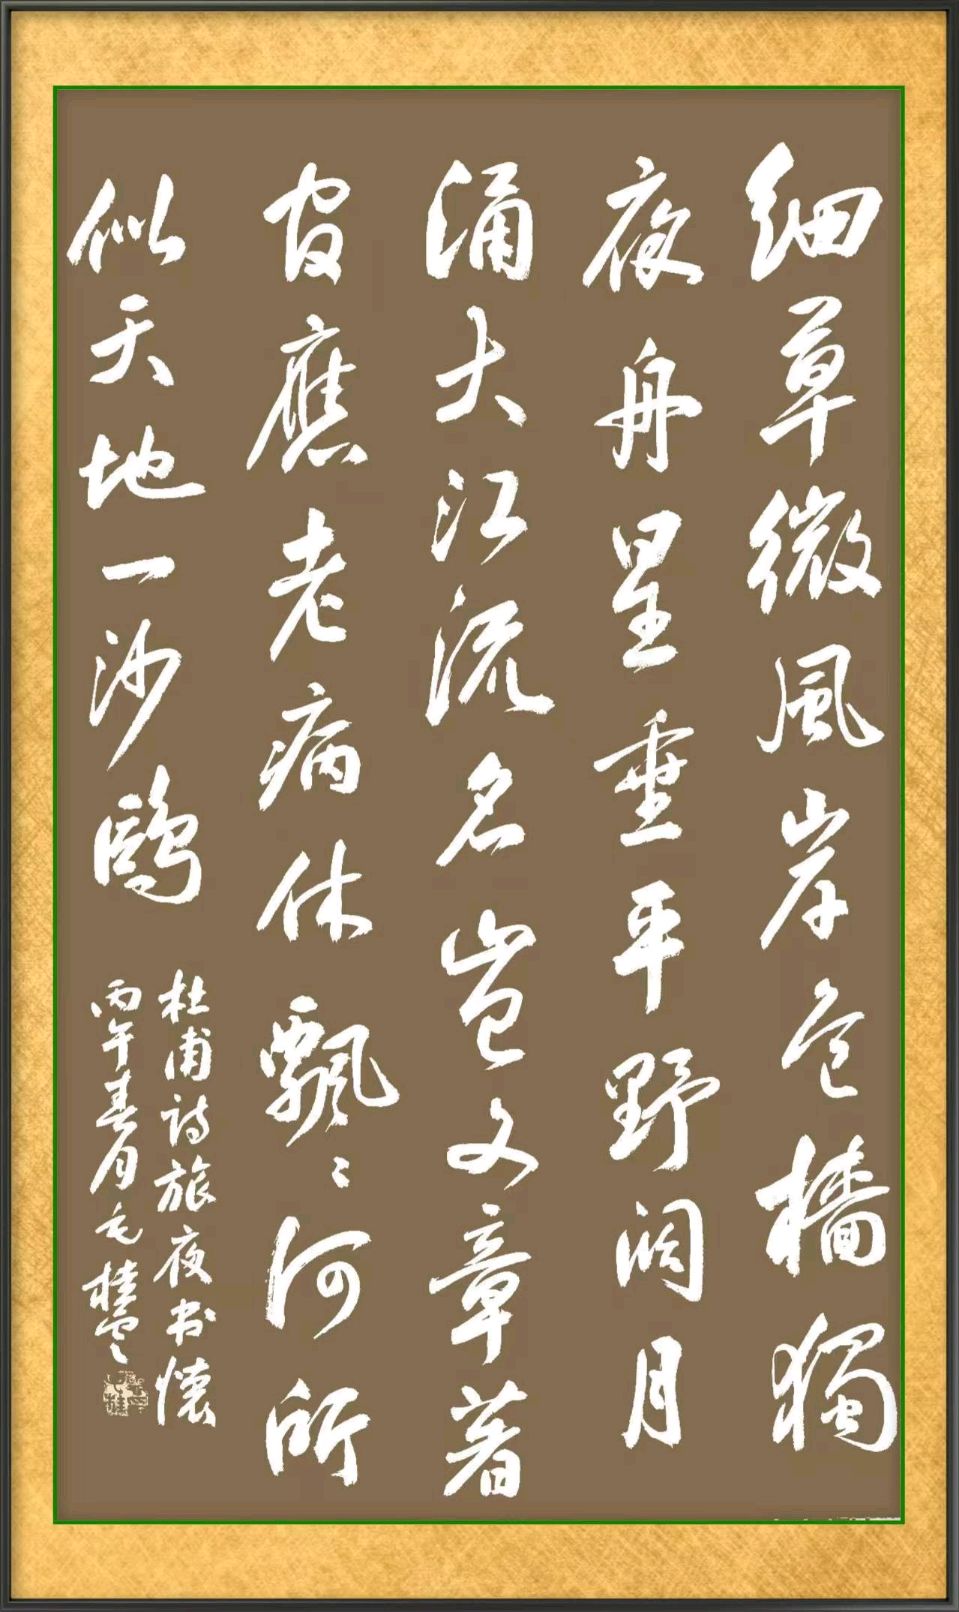 細草微風岸危檣獨
夜舟星垂平野闊月
涌大江流名豈文章著
官應老病休飄〻何所
似天地一沙鷗
杜甫诗旅夜书懷
丙午春月毛桂雲